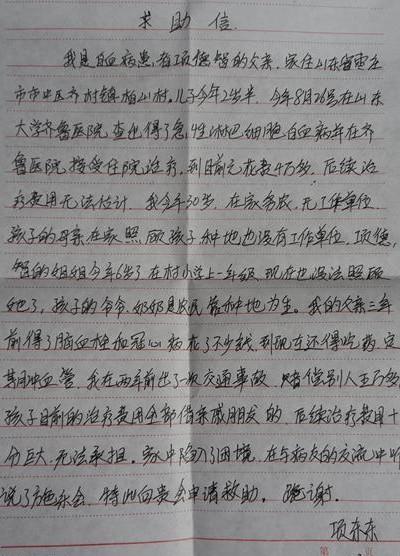 求助信
我是白血病患者项德智的父亲，家住山东省枣庄
市市中区齐村镇柏山村，儿子今年2岁半，今年8月26号在山东
大学齐鲁医院查出得了急性淋巴细胞白血病并在齐
鲁医院接受住院治疗，到目前元花费4万多，后续治
疗费用无法估计，我今年30岁，在家务农，无工作单位，
孩子的母亲在家照顾孩子种地也没有工作单位，项德
智的姐姐今年6岁了在村小学上一年级，现在也没法照顾
她了，孩子的爷爷，奶奶是农民靠种地为生。我的父亲三年
前得了脑血栓加冠心病花了不少钱，到现在还得吃药，定
期冲血管，我在两年前出了一次交通事故，赔偿别人五万多，
孩子目前的治疗费用全部借亲戚朋友的，后续治疗费用十
分巨大，无法承担。家中陷入了困境，在与病友的交流中听
说了施乐会，特此向贵会申请救助。跪谢。
项东东
第 页